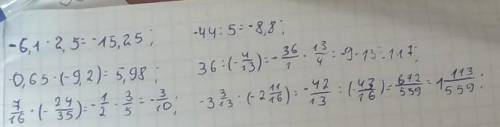 -6,1 · 2,5 = -15,25;
-0,65 · (-9,2) = 5,98;
7/16 · (-24/35) = -1/2 · 3/5 = -3/10;
-44 : 5 = -8,8;
36 : (-4/13) = -36/1 · 13/4 = -9·13 = 117;
-3 3/13 : (-2 11/16) = -42/13 : (-43/16) = 672/559 = 1 113/559;